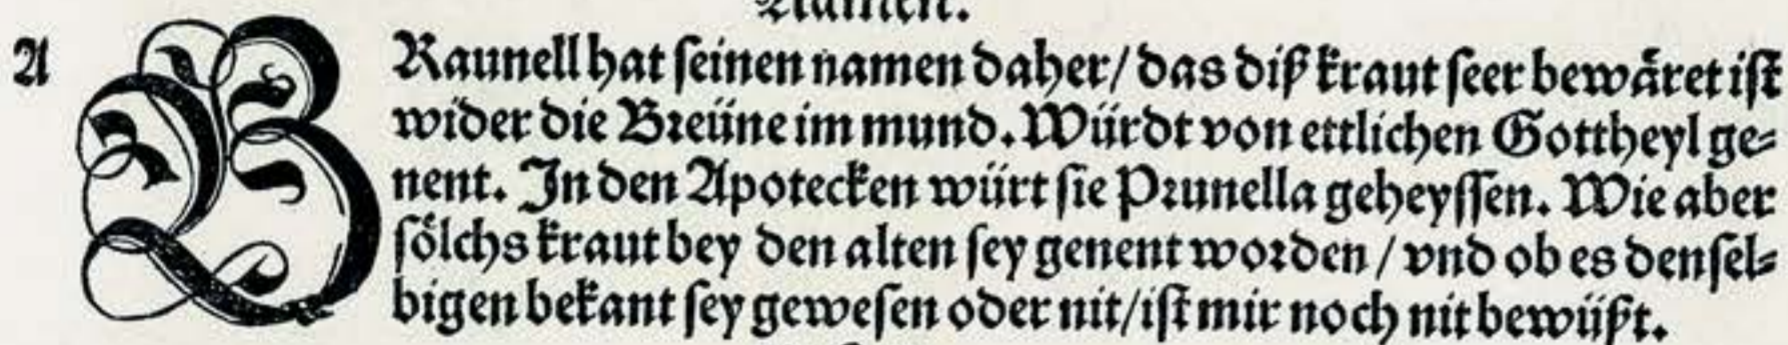 Namen.
A
BRaunell hat seinen namen daher/ das diß kraut seer bewäret ist
wider die Breüne im mund. Würdt von ettlichen Gottheyl ge⸗
nent. In den Apotecken würt sie Prunella geheyssen. Wie aber
sölchs kraut bey den alten sey genent worden / vnd ob es densel⸗
bigen bekant sey gewesen oder nit/ ist mir noch nit bewüßt.